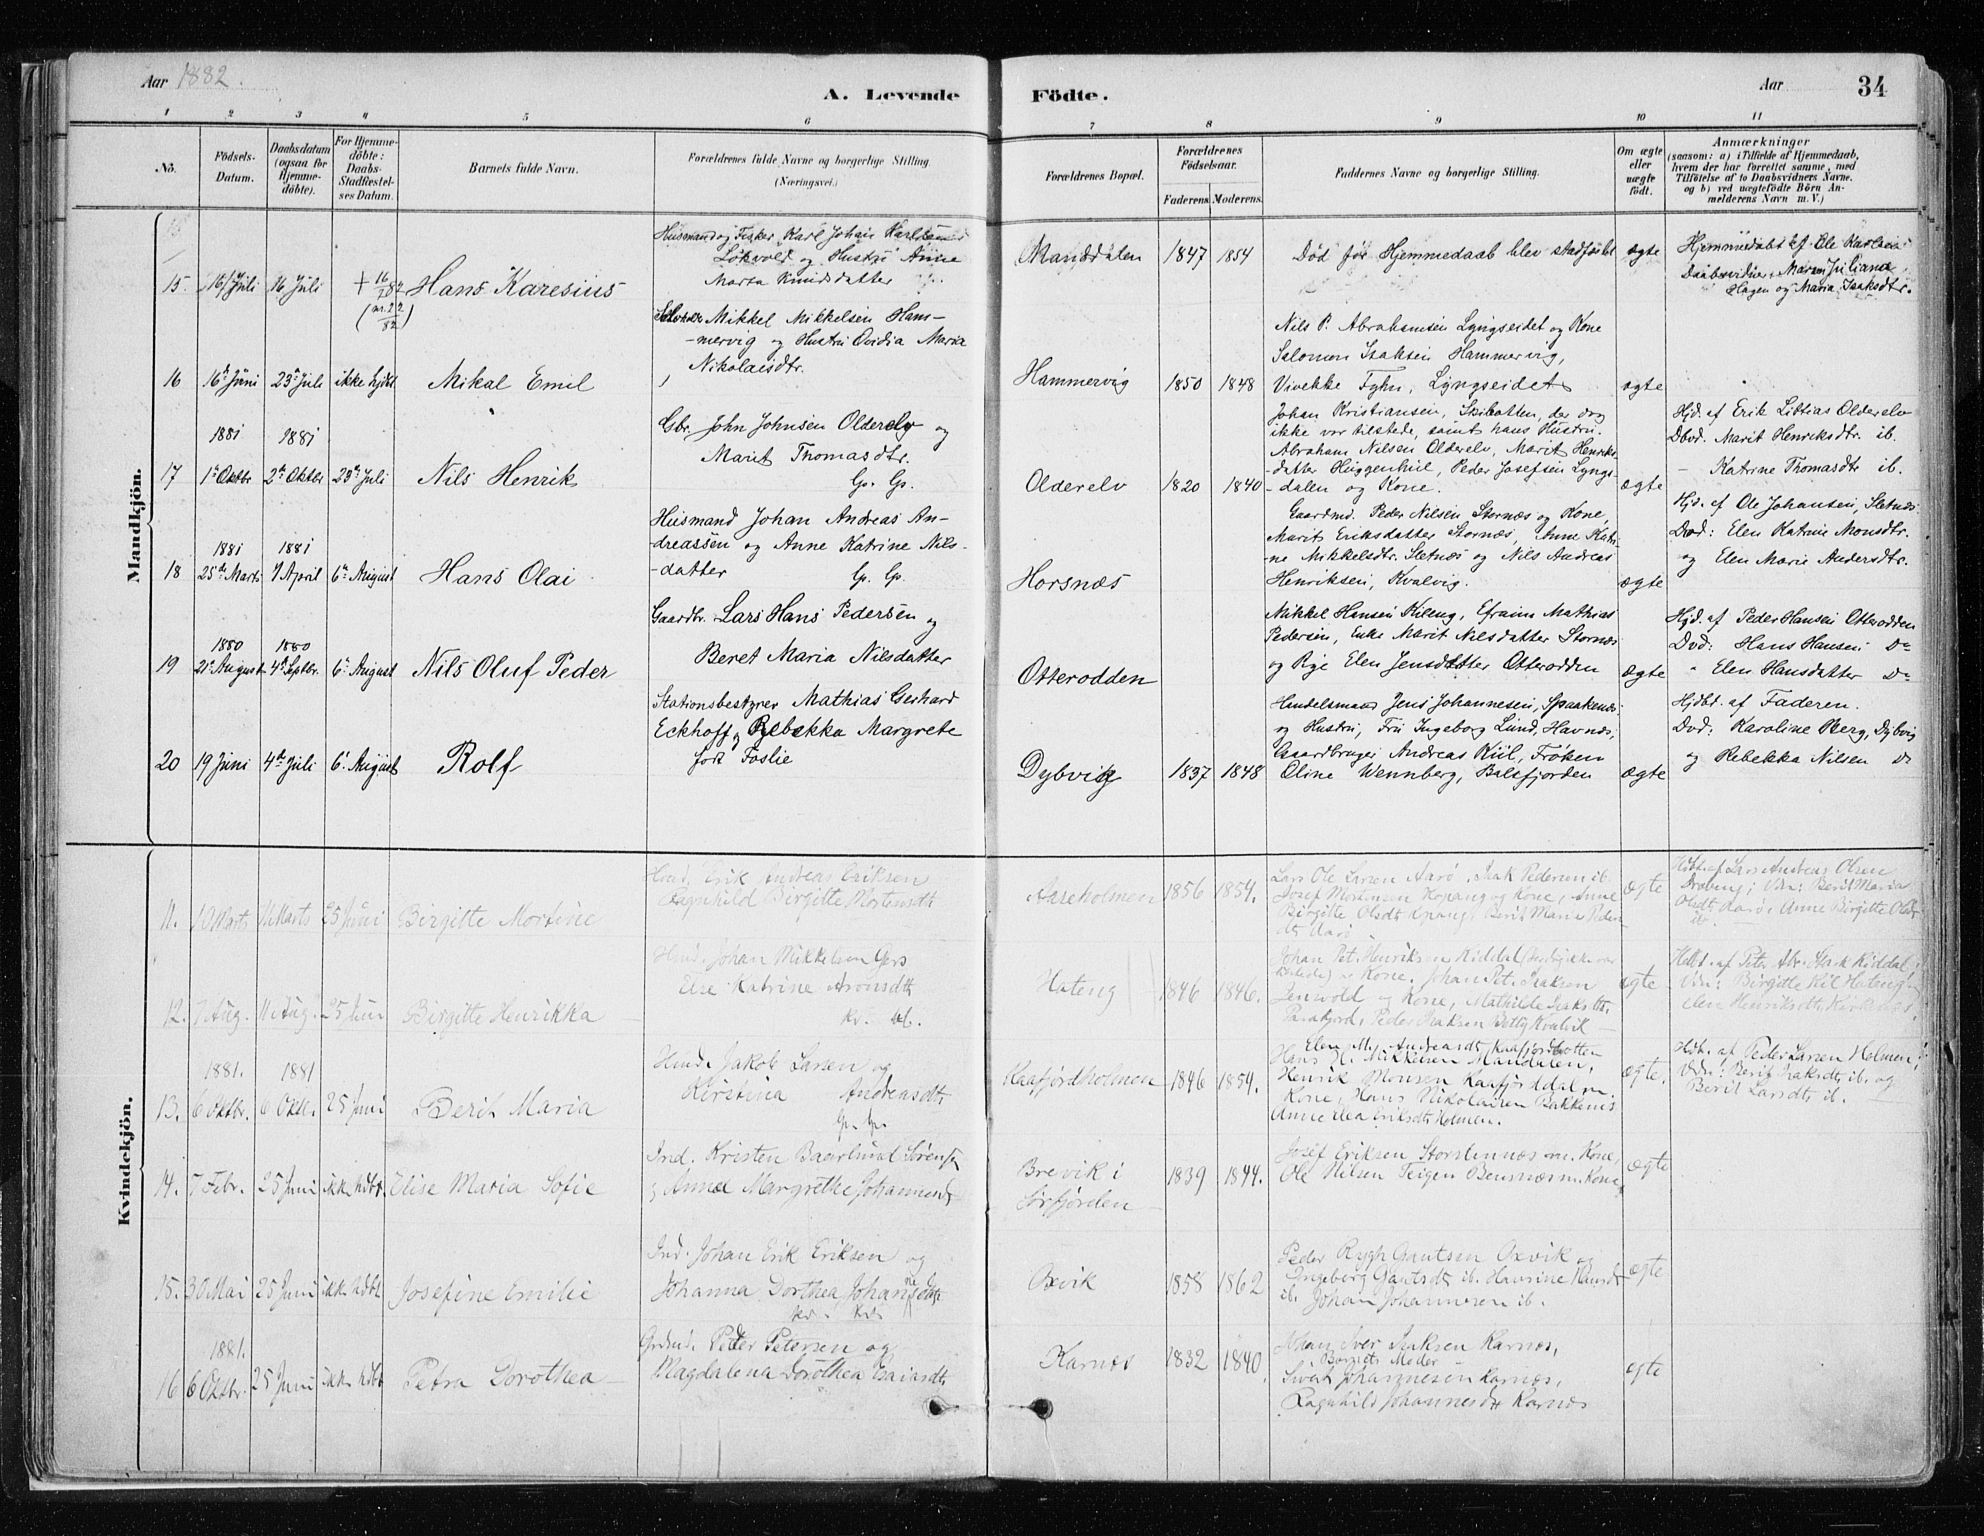 Aar 1882.
A. Levende Födte.
Aar
34
1 2 3 4 5 6 7 8 9 10 11
No.
Födsels-Datum.
Daabsdatum (ogsaa for Hjemme-döbte).
For Hjemme-döbte: Daabs-Stadfæstel-ses Datum.
Barnets fulde Navn.
Forældrenes fulde Navne og borgerlige Stilling. (Næringsvei.)
Forældrenes Bopæl.
Forældrenes Födselsaar.
Faderens. Moderens.
Faddernes Navne og borgerlige Stilling.
Om ægte eller uægte födt.
Anmærkninger
(saasom: a) i Tilfælde af Hjemmedaab, hvem der har forrettet samme, med Tilföielse af to Daabsvidners Navne. og b) ved uægtefödte Börn An-melderens Navn m. V.)
Mandkjön.
15. 16 Juli 16 Juli + 16/7 82 (nr. 22/82) Hans Karesius
Husmand og Fisker Karl Johan
Løkvold og Hustru Anne
Marta Knudsdatter
Manddalen 1847 1854
Død før Hjemmedaab blev stadfæstet
ægte
Hjemmedøbt af Ole
Daabsvidner, Maren Juliana
Hagen og Maria Isaksdtr.
16 16de Juni 23de Juli ikke hjdøbt Mikal Emil
Mikkel Mikkelsen Ham-
-mervig og Hustru Ovidia Maria
Nikolaisdtr.
Hammervig 1850 1848
Nils P. Abrahamsen Lyngseidet og Kone
Salomon Isaksen Hammervig,
Vivekke Fyhn, Lyngseidet
ægte
17 1881 1ste Oktbr. 1881 2den Oktbr. 23de Juli Nils Henrik
Gbr. John Johnsen Olderelv og
Marit Thomasdtr.
Gp. Gp.
Olderelv 1820 1840
Johan Kristiansen, Skibotten, der dog
ikke var tilstede, samt hans Hustru.
Abraham Nilsen Olderelv, Marit Henriks-
-datter Huggenkiil, Peder Josefsen Lyngs-
-dalen og Kone.
ægte
Hjd. af Erik Olderelv
Dbvd. Marit Henriksdtr. ib.
- Katrine Thomasdtr ib.
18 1881 25de Marts 1881 7 April 6te August Hans Olai
Husmand Johan Andreas An-
-dreassen og Anne Katrine Nils-
-datter Gp. Gp.
Horsnæs
Gaardmd. Peder Nilsen Stornæs og Kone,
Marit Eriksdatter Stornæs, Anne Katri-
ne Mikkelsdtr. Sletnæs og Nils Andreas
Henriksen, Kvalvig.
ægte
Hjd. af Ole Johansen, Sletnæs
Dvd: Elen Katrine Monsdtr.
og Elen Marie Andersdtr.
19 1880 21de August 1880 4de Septbr. 6te August Nils Oluf Peder
Gaardbr. Lars Hans Pedersen og
Beret Maria Nilsdatter
Otterodden
Mikkel Hansen Kileng, Efraim Mathias
Pedersen, Enke Marit Nilsdatter Stornæs
og Pige Elen Jensdatter Otterodden
ægte
Hjd. af Peder Hansen Otterodden
Dvd: Hans Hansen Do
" Elen Hansdatter Do
20 19 Juni 4de Juli 6te August Rolf
Stationsbestyrer Mathias Gerhard
Eckhoff og Rebekka Margrete
født Foslie
Dybvig 1837 1848
Handelsmand Jens Johannesen, Spaakenes
og Hustru, Fru Ingeborg Lund, Havnæs,
Gaardbruger Andreas Kiil, Frøken
Oline Wennberg, Balsfjorden
ægte
Hjdbt. af Faderen.
Dvd: Karoline Berg, Dybvig
og Rebekka Nilsen Do
Kvindekjön.
11. 10 Marts 11 Marts 25 Juni Birgitte Mortine
Hmd. Erik Andreas Eriksen
Ragnhild Birgitte Mortensdtr
Aareholmen 1856 1854.
Lars Ole Larsen Aarø, Isak Pedersen ib.
Josef Mortensen Kopang og Kone, Anne
Birgitte Olsdtr Kopang, Berit Maria Peders
dtr Aarø
ægte
Hdbt. af Lars Andreas Olsen
Vdn: Berit Maria
Olsdtr Aarø, Anne Birgitte Olsdtr
ib.
12. 7 Aug. 11 Aug. 25 Juni Birgitte Henrikka
Hmd. Johan Mikkelsen Gers
Else Katrine Aronsdtr
Hateng 1846 1846.
Johan Pet. Henriksen Kiddal
Kone, Johan Pet. Isaksen
og Kone, Mathilde Isaksdtr,
Peder Isaksen Kvalvik
ægte
Hdbt. af Peter Abr. Kiddal;
Vdn: Birgitte Hateng
Elen Henriksdtr
13. 1881. 6 Oktbr. 1881 6 Okt. 25 Juni Berit Maria
Hmd. Jakob Larsen og
Kirstina Andreasdtr
Kaafjordholmen 1846 1854.
Elen M. Andreasdtr Kaafjordbotten
Hans H. Mikkelsen Mandalen,
Henrik Monsen Kaafjorddal m.
Kone, Hans Nikolaisen Bakkenes
Anne Eriksdtr Holmen.
ægte.
Hdbt. af Peder Larsen Holmen;
Vdn: Berit Isaksdtr ib. og
Berit Larsdtr ib.
14. 7 Febr. 25 Juni ikk. hdbt. Elise Maria Sofie
Ind. Kristen Baarlund Sørensen
og Anne Margrethe Johannesdtr
Brevik i Sørfjorden 1839 1844.
Josef Eriksen m. Kone,
Ole Nilsen Teigen Bensnæs m. Kone
ægte
15. 30 Mai 25 Juni ikk. hdbt. Josefine Emilie
Ind. Johan Erik Eriksen og
Johanna Dorthea Johannesdtr
Oxvik 1858 1862
Peder Rygh Gautsen Oxvik og
Ingeborg Gautsdtr ib. Haurine Hansdtr
ib. Johan Johannesen ib.
ægte
16 1881. 6 Oktbr. 25 Juni ikk. hdbt. Petra Dorothea
Peder Petersen og
Magdalena Dorothea Esaiasdtr
Karnæs 1832 1840.
Johan Iver Isaksen Karnæs,
Barnets Moder
Sivert Johannesen Karnæs,
Ragnhild Johannesdtr Karnæs
ægte